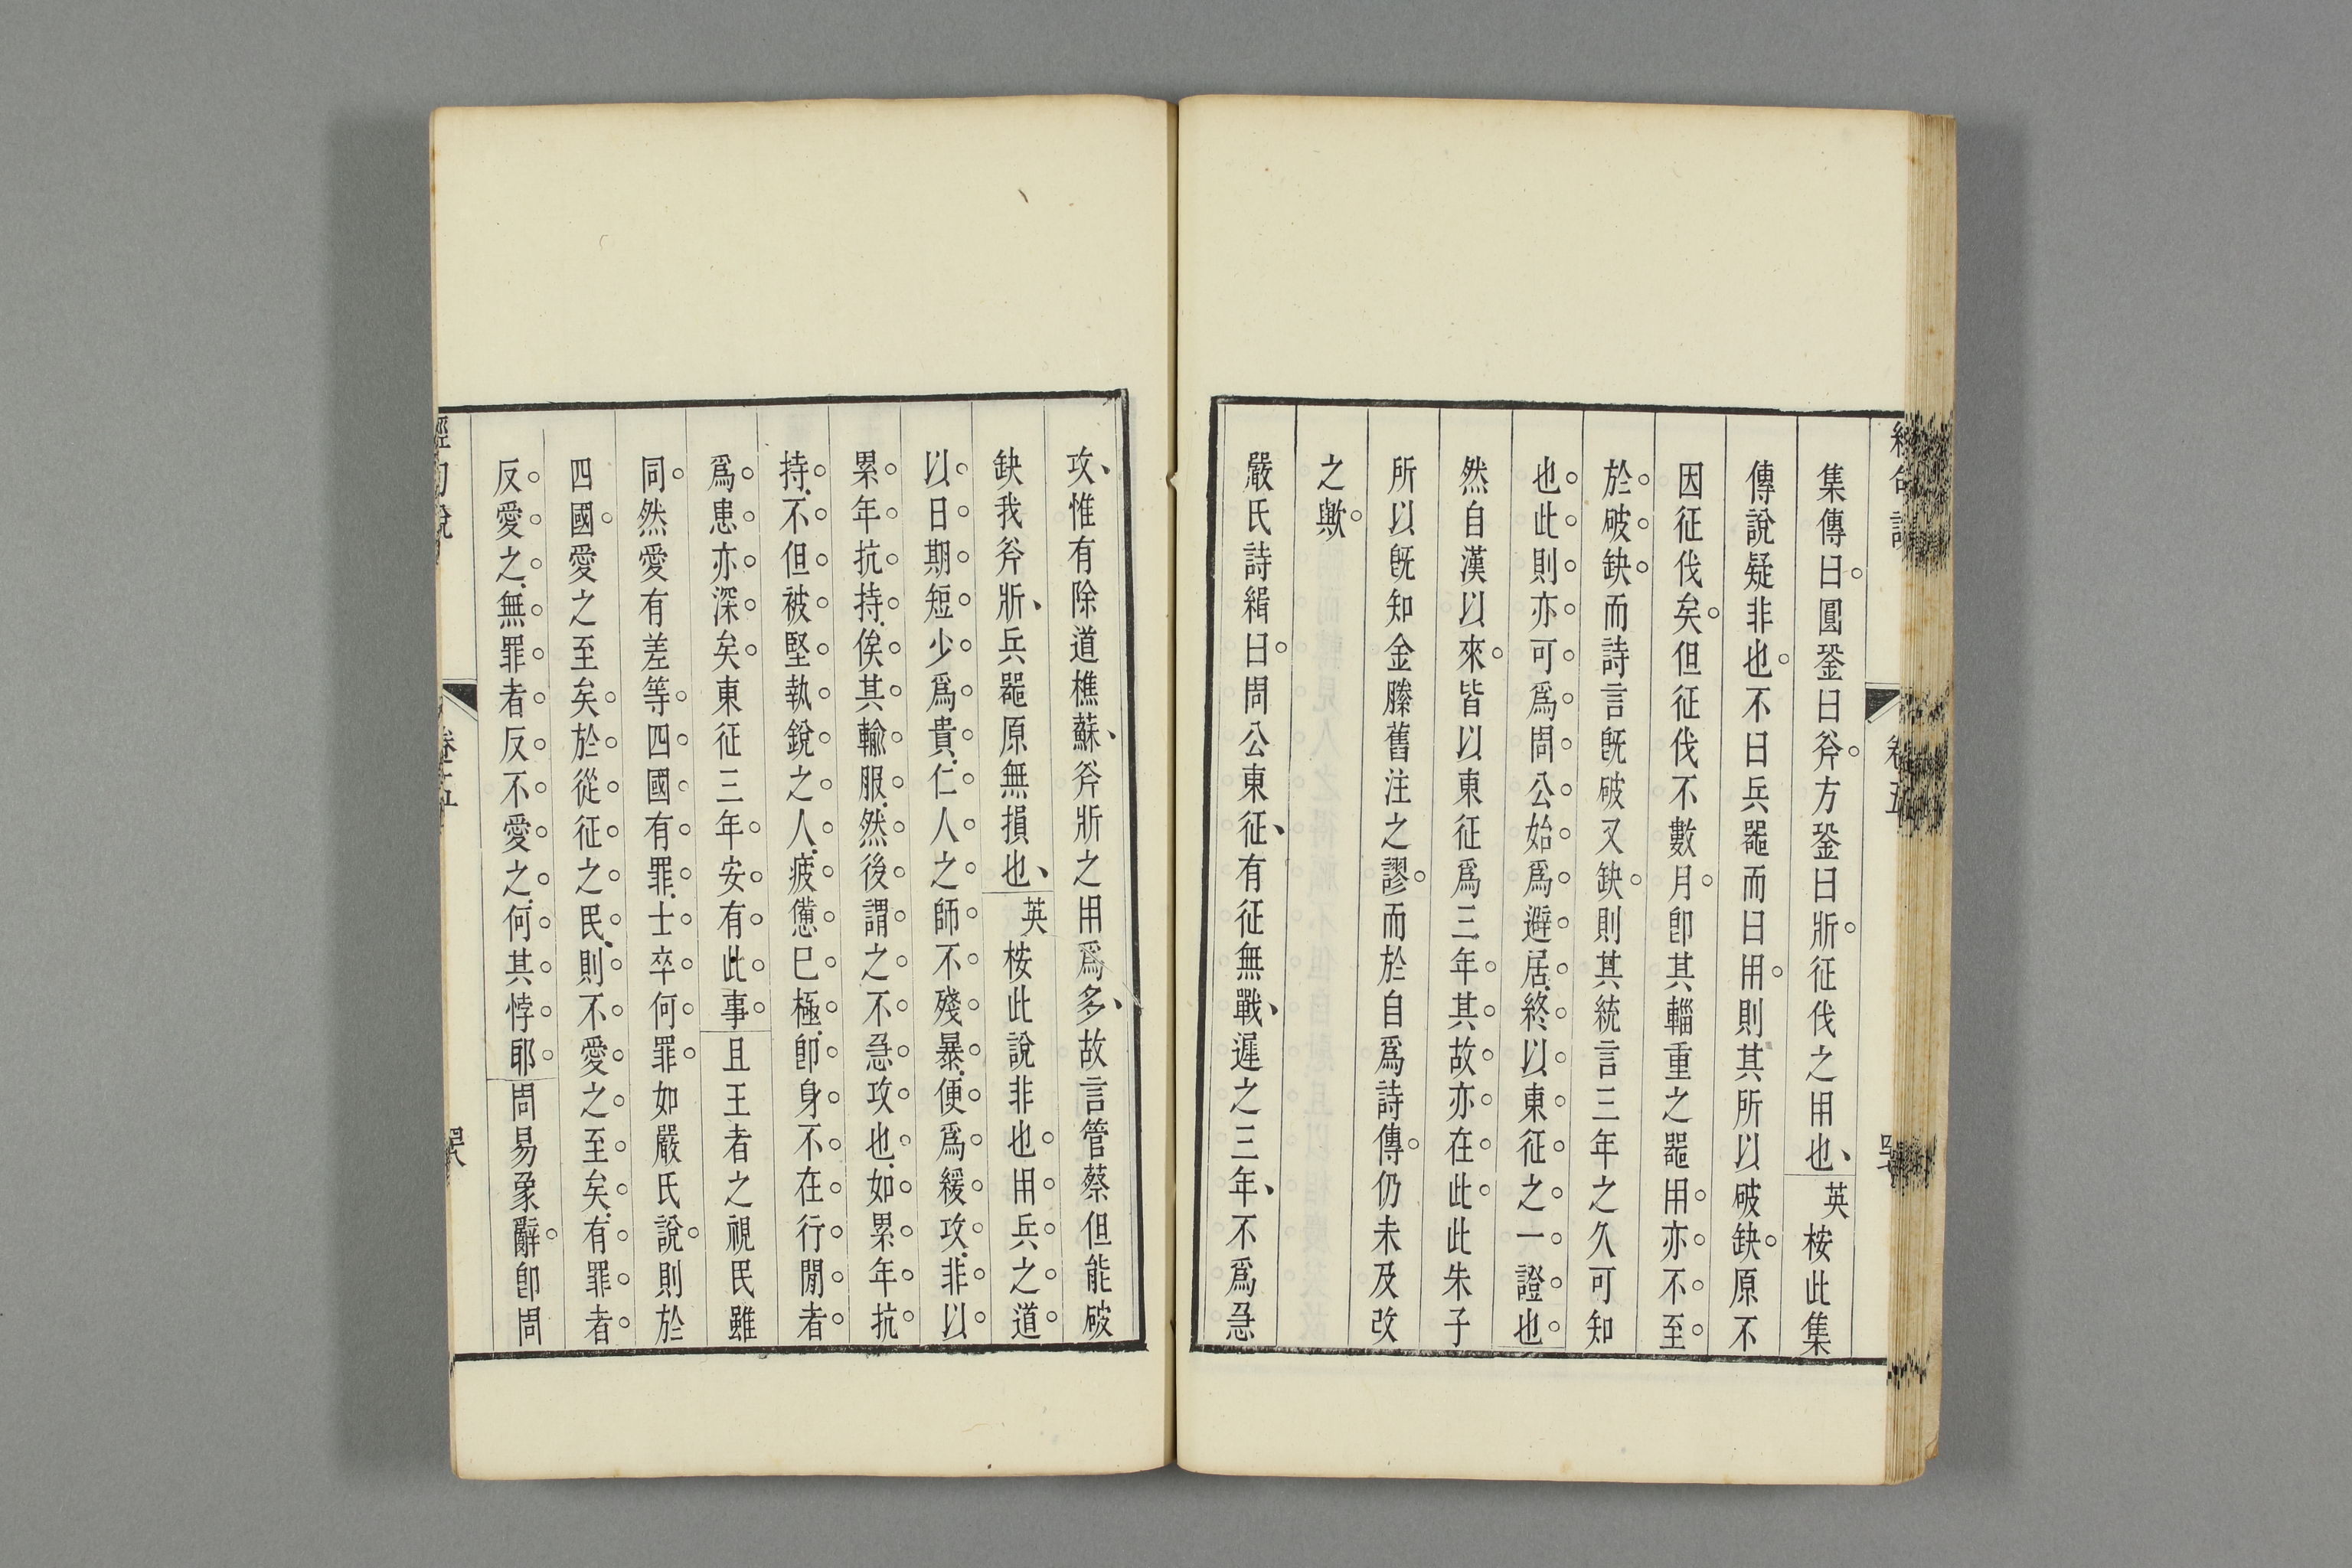 集傳曰圓銎曰斧方銎曰斨征伐之用也英桉此集
傳說疑非也不曰兵器而曰用則其所以破缺原不
因征伐矣但征伐不數月卽其輜重之器用亦不至
於破缺而詩言旣破又缺則其統言三年之久可知
也此則亦可爲周公始爲避居終以東征之一證也
然自漢以來皆以東征爲三年其故亦在此此朱子
所以旣知金縢舊注之謬而於自爲詩傳仍未及改
之歟
嚴氏詩緝曰周公東征有征無戰遲之三年不爲急
攻惟有除道樵蘇斧斨之用爲多故言管蔡但能破
缺我斧斨兵器原無損也英桉此說非也用兵之道
以日期短少爲貴仁人之師不殘暴便爲緩攻非以
累年抗持俟其輸服然後謂之不急攻也如累年抗
持不但被堅執銳之人疲憊已極卽身不在行閒者
爲患亦深矣東征三年安有此事且王者之視民雖
同然愛有差等四國有罪士卒何罪如嚴氏說則於
四國愛之至矣於從征之民則不愛之至矣有罪者
反愛之無罪者反不愛之何其悖耶周易彖辭卽周
經句說
卷五